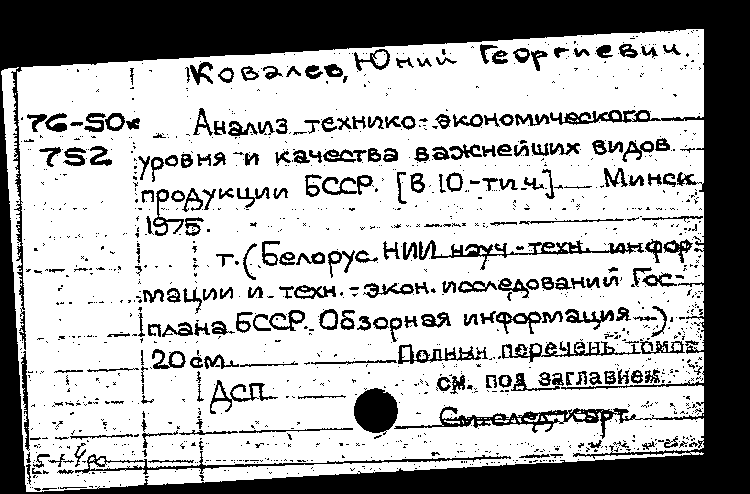 Ковалев, Юний Георгиевич.
76-50к Анализ технико-экономического
752 уровня и качества важнейших видов
продукции БССР. [В 10-ти ч.] Минск,
1975.
т. (Белорус. НИИ науч.-техн. инфор-
мации и техн.-экон. исследований Гос-
плана БССР. Обзорная информация...).
20 см. Полный перечень томов
см. под заглавием.
ДСП
См. след. карт.